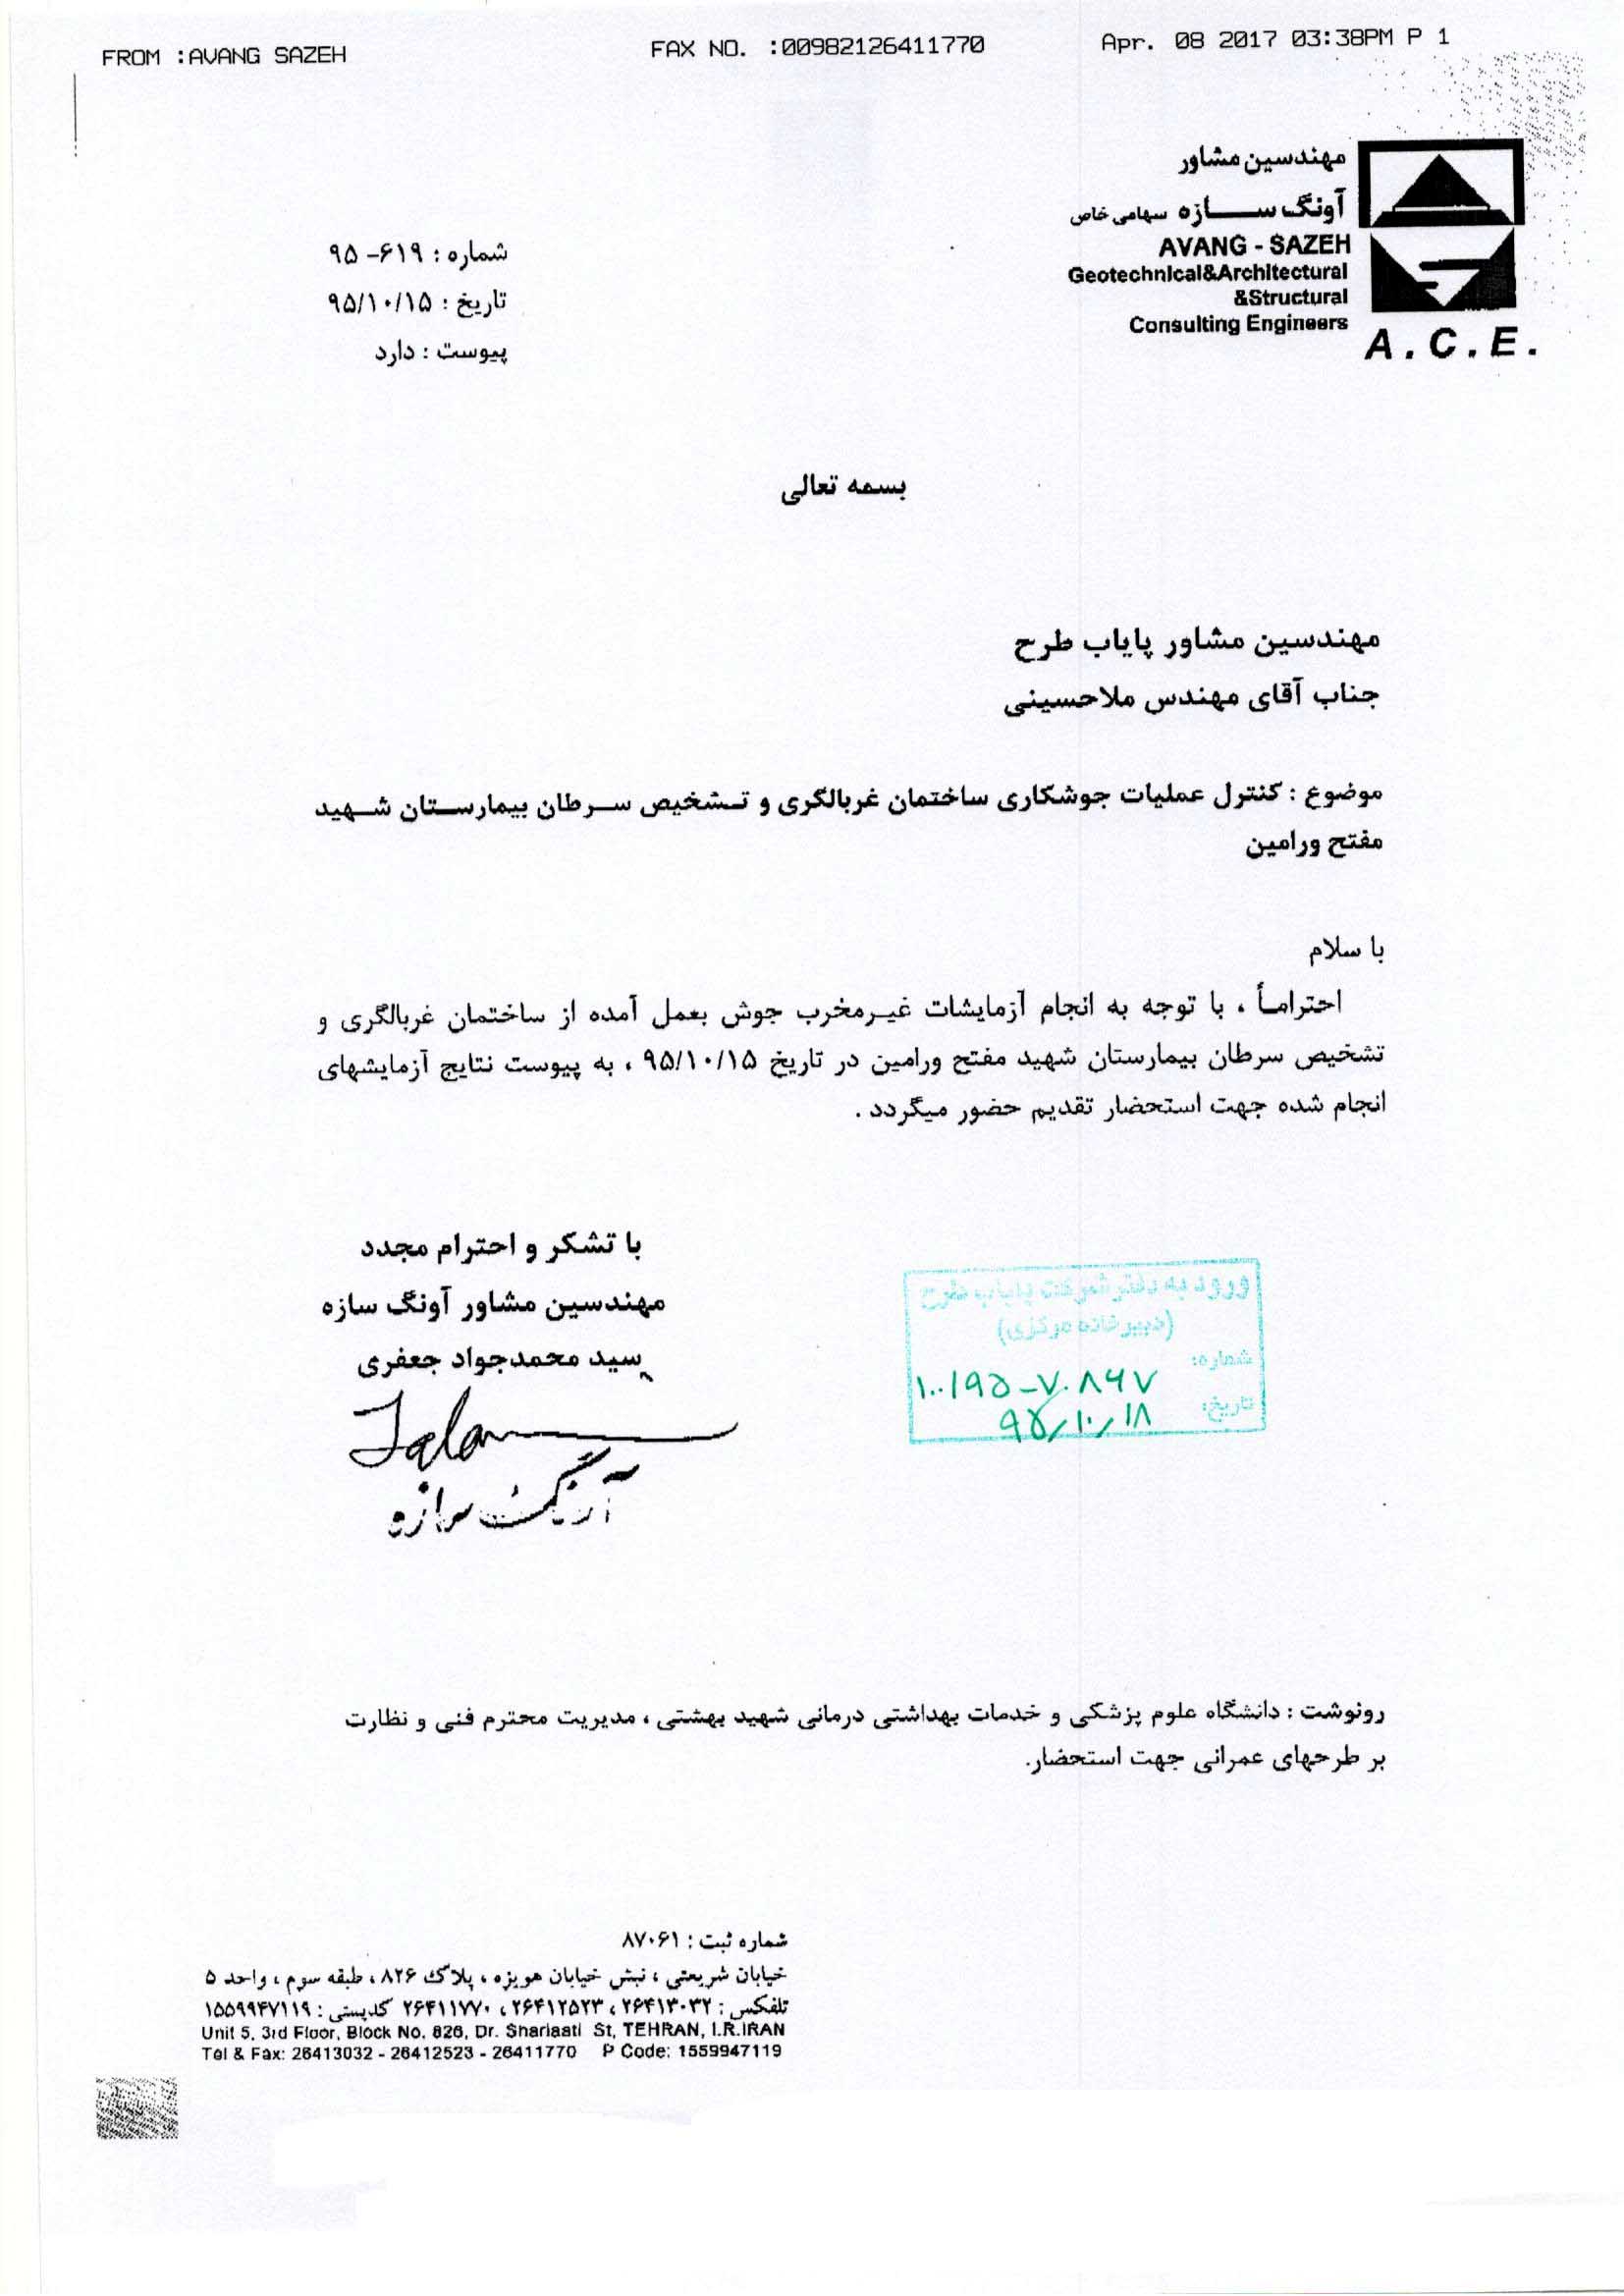 FROM :AVANG SAZEH FAX NO. :00982126411770 Apr. 08 2017 03:38PM P 1
مهندسین مشاور
آونگ سازه سهامی خاص
AVANG - SAZEH
Geotechnical&Architectural
&Structural
Consulting Engineers
A.C.E.
شماره : ۶۱۹-۹۵
تاریخ : ۹۵/۱۰/۱۵
پیوست : دارد
بسمه تعالی
مهندسین مشاور پایاب طرح
جناب آقای مهندس ملاحسینی
موضوع : کنترل عملیات جوشکاری ساختمان غربالگری و تشخیص سرطان بیمارستان شهید
مفتح ورامین
با سلام
احتراماً ، با توجه به انجام آزمایشات غیرمخرب جوش بعمل آمده از ساختمان غربالگری و
تشخیص سرطان بیمارستان شهید مفتح ورامین در تاریخ ۹۵/۱۰/۱۵ ، به پیوست نتایج آزمایشهای
انجام شده جهت استحضار تقدیم حضور میگردد .
با تشکر و احترام مجدد
مهندسین مشاور آونگ سازه
سید محمدجواد جعفری
آونگ سازه
ورود به دفتر شرکت پایاب طرح
(دبیرخانه مرکزی)
شماره: ۱۰۰/۹۵-۷۰۸۶۷
تاریخ: ۹۵/۱۰/۱۸
رونوشت : دانشگاه علوم پزشکی و خدمات بهداشتی درمانی شهید بهشتی ، مدیریت محترم فنی و نظارت
بر طرحهای عمرانی جهت استحضار.
شماره ثبت : ۸۷۰۶۱
خیابان شریعتی ، نبش خیابان هویزه ، پلاک ۸۲۶ ، طبقه سوم ، واحد ۵
تلفکس : ۲۶۴۱۳۰۳۲ ، ۲۶۴۱۲۵۲۳ ، ۲۶۴۱۱۷۷۰ کدپستی : ۱۵۵۹۹۴۷۱۱۹
Unit 5, 3rd Floor, Block No. 826, Dr. Shariaati St, TEHRAN, I.R.IRAN
Tel & Fax: 26413032 - 26412523 - 26411770 P Code: 1559947119